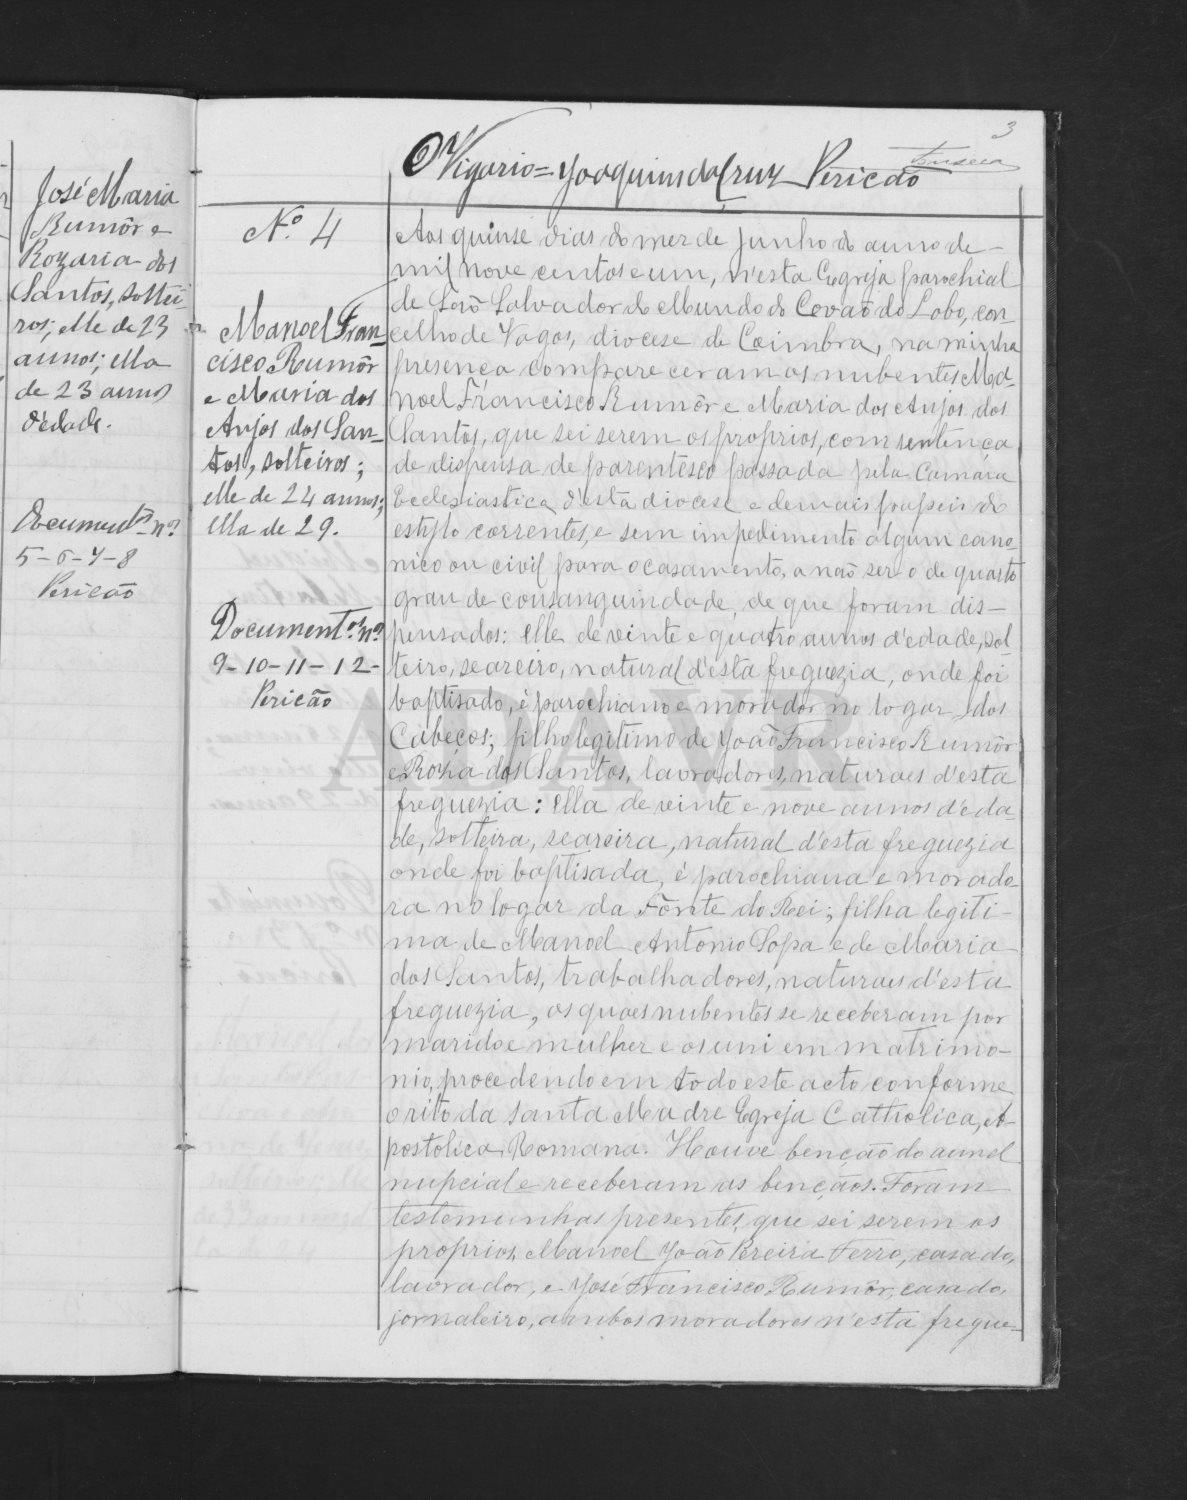 José Maria
Rumôr e
Rozaria dos
Santos, soltei-
ros; elle de 23
annos; ella
de 23 annos
d'edade.
Documentos nos
5-6-7-8
Pericão
3
Fonseca
O Vigario = Joaquim da Cruz Pericão
No. 4
Manoel Fran-
cisco Rumôr
e Maria dos
Anjos dos San-
tos, solteiros;
elle de 24 annos;
ella de 29.
Documentos nos
9-10-11-12-
Pericão
Aos quinse dias do mez de Junho do anno de
mil nove centos e um, n'esta Egreja parochial
de São Salvador do Mundo do Covão do Lobo, con-
celho de Vagos, diocese de Coimbra, na minha
presença compareceram os nubentes Ma-
noel Francisco Rumôr e Maria dos Anjos dos
Santos, que sei serem os proprios, com sentença
de dispensa de parentesco passada pela Camara
Ecclesiastica d'esta diocese e demais papeis do
estylo correntes, e sem impedimento algum cano-
nico ou civil para o casamento, a não ser o de quarto
grau de consanguindade, de que foram dis-
pensados: elle de vinte e quatro annos d'edade, sol-
teiro, seareiro, natural d'esta freguezia, onde foi
baptisado, é parochiano e morador no logar dos
Cabeços; filho legitimo de João Francisco Rumôr
e Roza dos Santos, lavradores, naturaes d'esta
freguezia: ella de vinte e nove annos d'eda-
de, solteira, seareira, natural d'esta freguezia
onde foi baptisada, é parochiana e morado-
ra no logar da Fonte do Rei; filha legiti-
ma de Manoel Antonio Sopa e de Maria
dos Santos, trabalhadores, naturaes d'esta
freguezia, os quaes nubentes se receberam por
marido e mulher e os uni em matrimo-
nio, procedendo em todo este acto conforme
o rito da Santa Madre Egreja Catholica, A-
postolica Romana. Houve benção do annel
nupcial e receberam as bençãos. Foram
testemunhas presentes, que sei serem os
proprios, Manoel João Pereira Ferro, casado,
lavrador, e José Francisco Rumôr, casado,
jornaleiro, ambos moradores n'esta fregue-